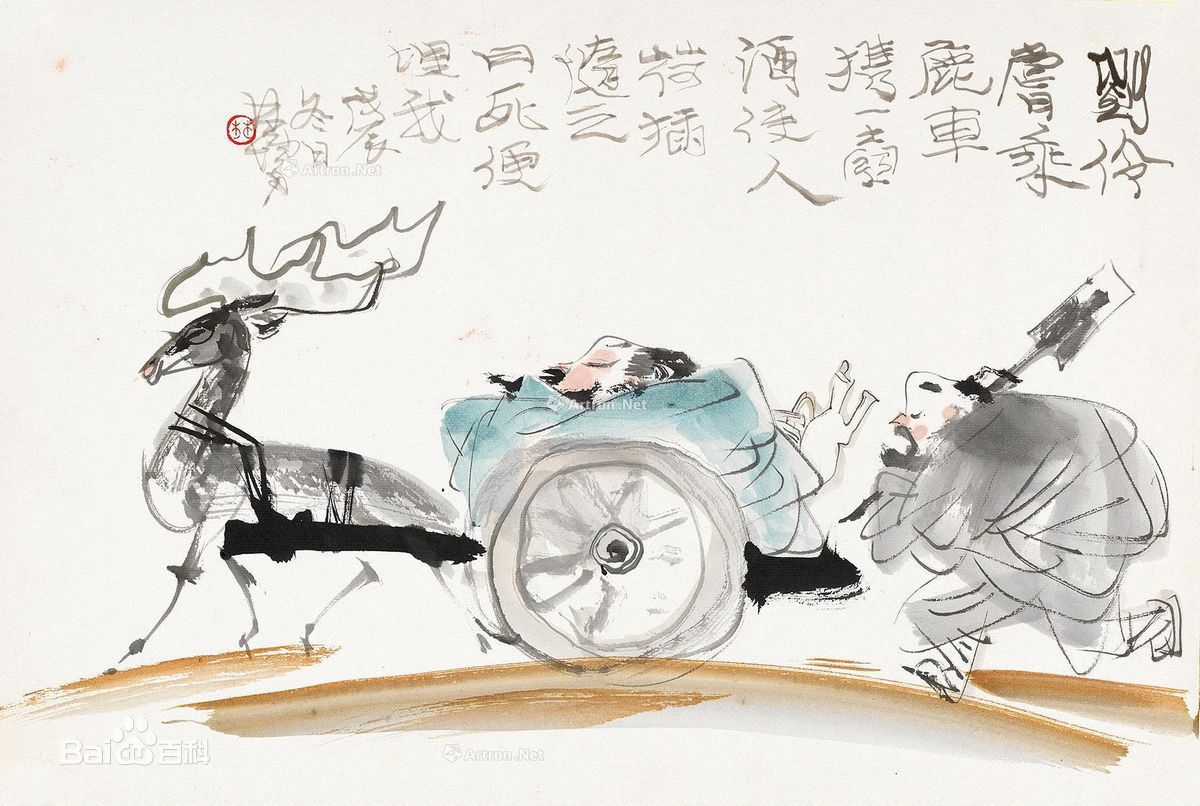 劉伶
嘗乘
鹿車
攜一壺
酒使人
荷插
隨之
曰死便
埋我
戊辰
冬日
林
Artron.Net
Artron.Net
Bai百科
Artron.Net